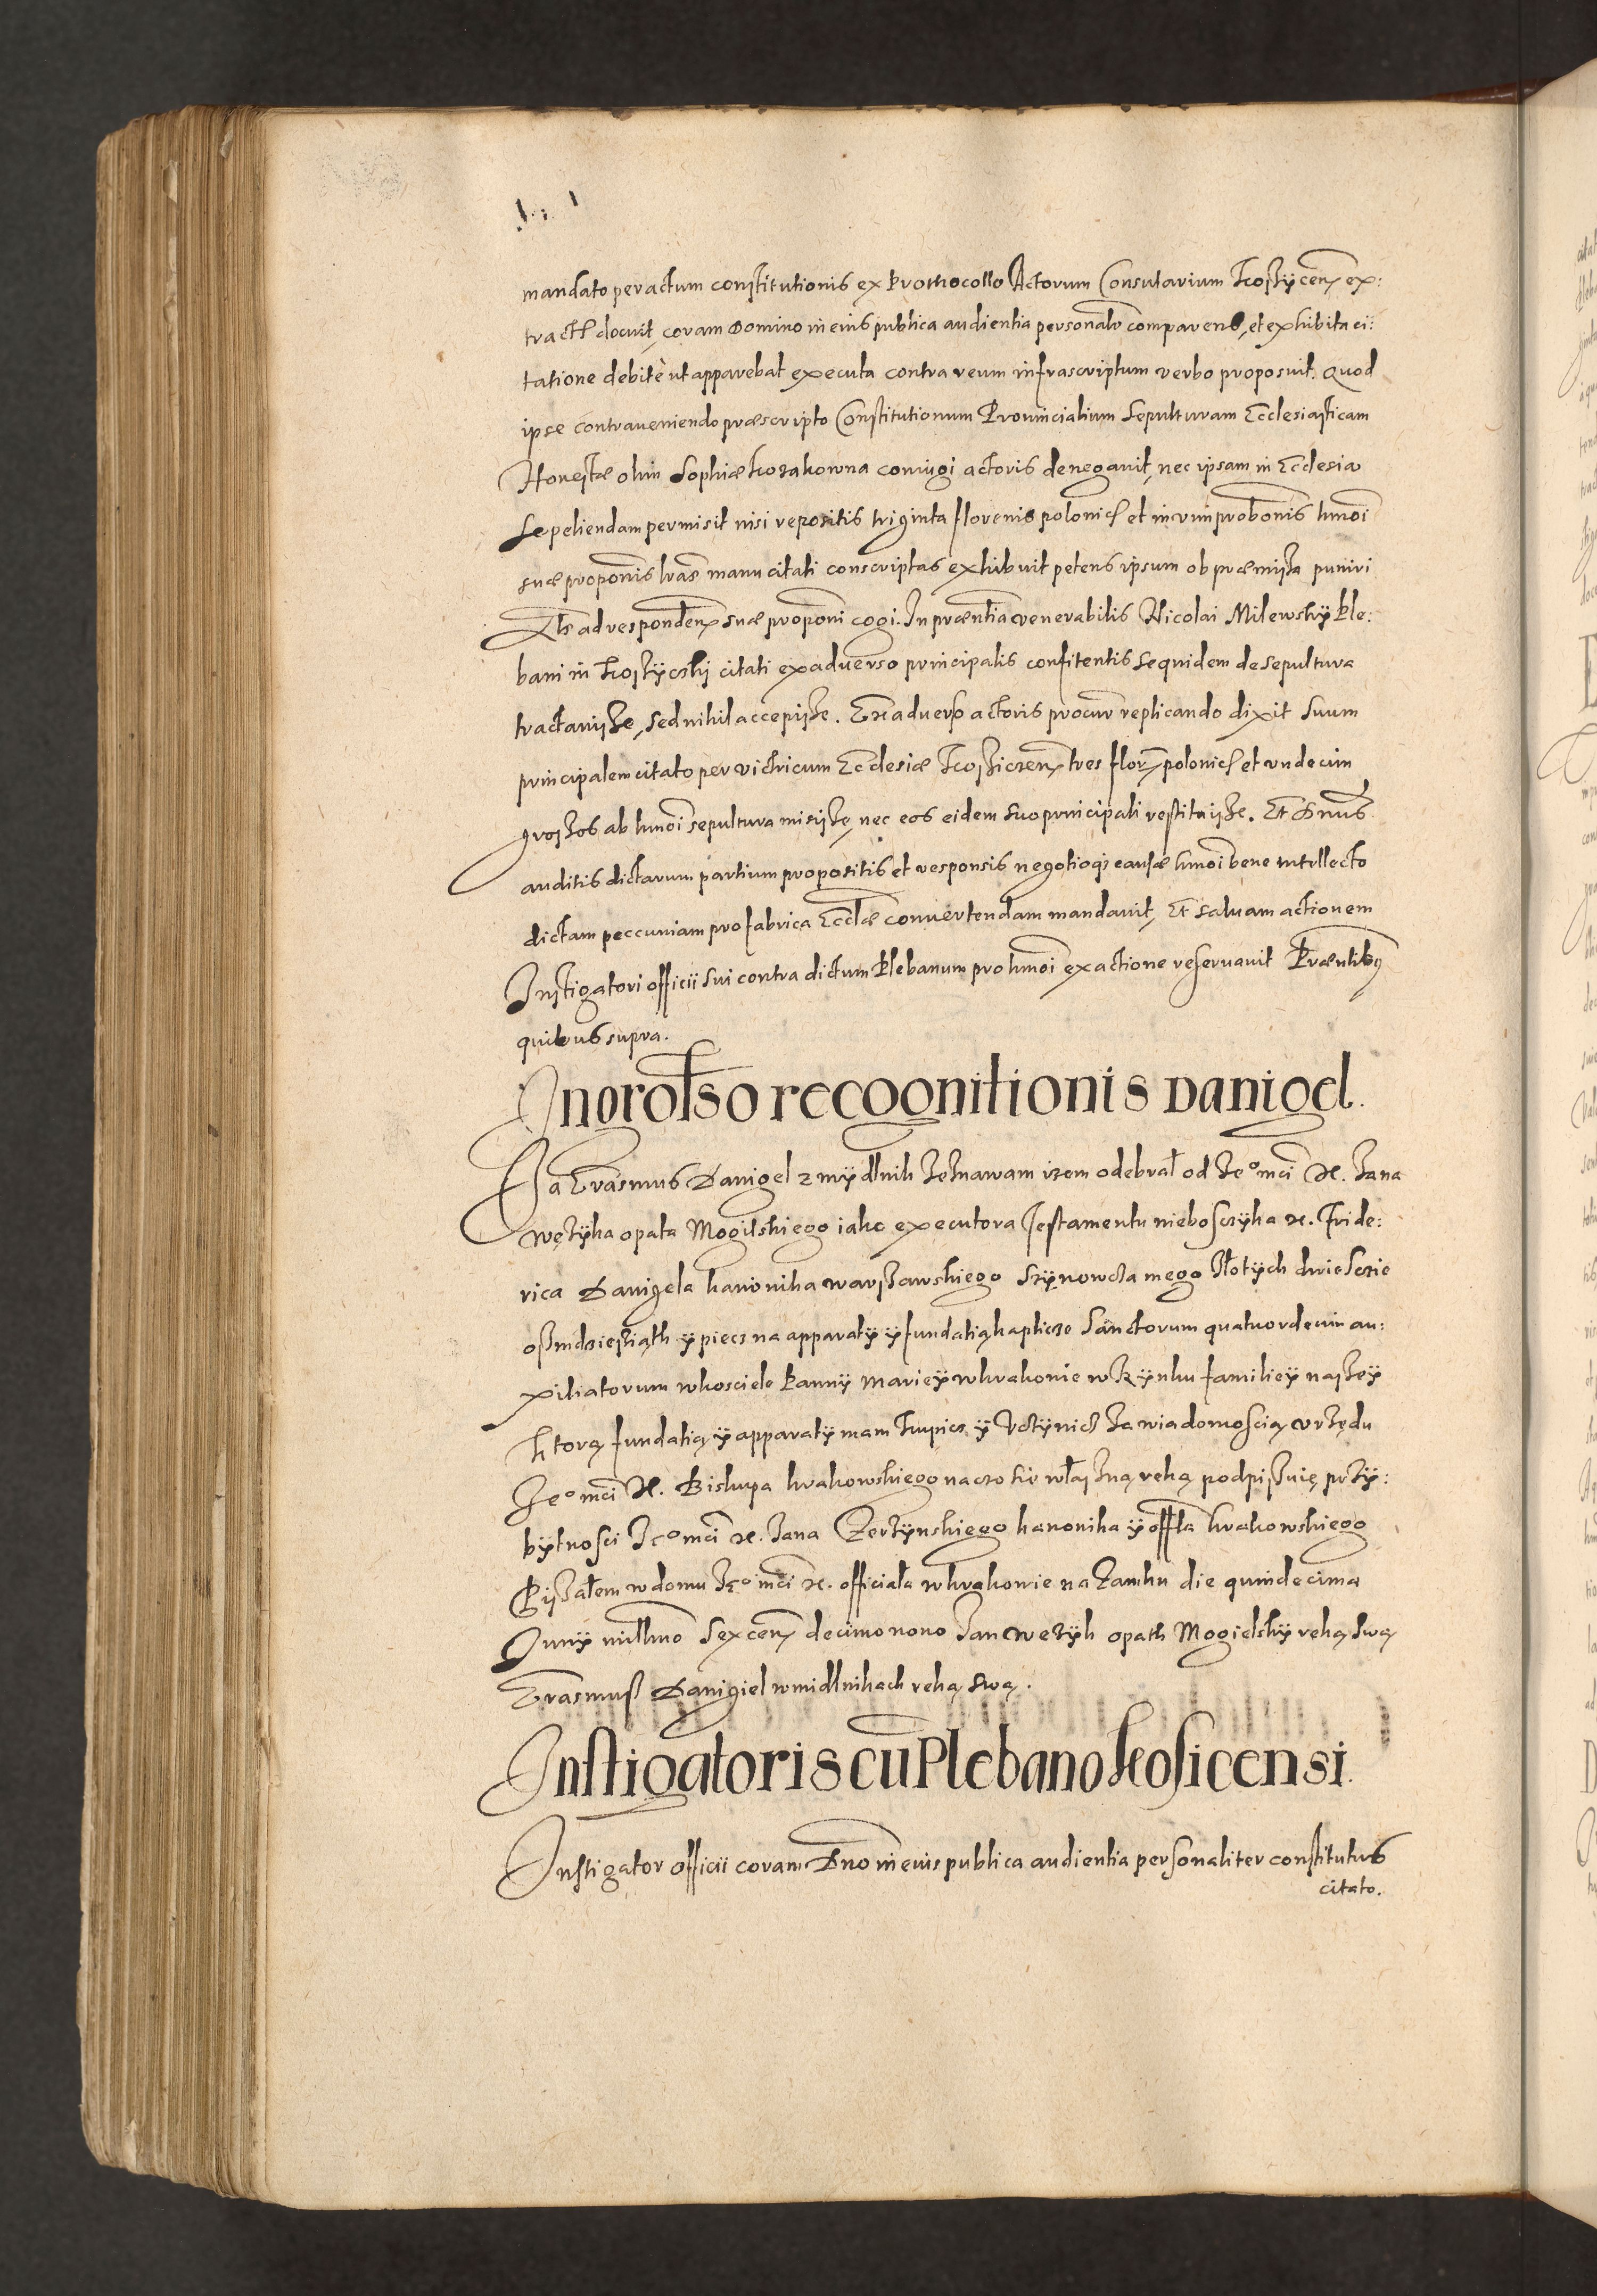 mandato peractum constitutionis ex Prothocollo Actorum Consularium Koszÿcen ex:
tract docuit, coram Domino in eius publica audientia personalr comparens, et exhibita ci:
tatione debitè ut apparebat executa contra reum infrascriptum verbo proposuit. Quod
ipse contraveniendo præscripto Constitutionum Provincialium Sepulturam Ecclesiasticam
Honestæ olim Sophiæ Kozakowna coniugi actoris denegavit, nec ipsam in Ecclesia
Sepeliendam permisit nisi repositis triginta florenis polonicł et in vim probonis hmoi
suæ proponis lras manu citati conscriptas exhibuit petens ipsum ob præmissa puniri
Als ad responden suæ proponi cogi. In præntia venerabilis Nicolai Milewskÿ Ple:
bani in Koszÿczkj citati ex adverso principalis confitentis se quidem de sepultura
tractavisse, sed nihil accepisse. Ex adverso actoris procur replicando dixit suum
principalem citato per victricum Ecclesiæ Kosziczen tres flor polonicł et undecim
grossos ab hmoi sepultura misisse, nec eos eidem suo principali restituisse. Et Dnus
auditis dictarum partium propositis et responsis negotioqz causæ hmoi bene intellecto
dictam peccuniam pro fabrica Ecclæ convertendam mandavit, Et salvam actionem
Instigatori officii sui contra dictum Plebanum pro hmoi exactione reservavit Præntibus
quibus supra.
Ingrossõ recognitionis Danigel.
Ja Erasmus Danigel z mÿdlnik zeznawam izem odebrał od Jeo mci X. Jana
Wężÿka opata Mogilskiego iako executora Testamentu nieboszczÿka X. Fride:
rica Danigela kanonika warszawskiego Szÿnowcza mego złotÿch dwiesczie
oszmdziesiąth ÿ piecz na apparatÿ ÿ fundatią kaplicze Sanctorum quatuordecim au:
xiliatorum w kosciele Pannÿ Mariey w krakowie w Rÿnku familieÿ naszeÿ
Ktorą fundatią ÿ apparatÿ mam kupicz ÿ Uczÿnicz za wiadomoscią urzędu
Jeo mci X. Biskupa krakowskiego na czo sie własną reką podpiszuię przÿ:
bÿtnosci Jeo mci X. Jana Zerzÿnskiego kanonika ÿ offła krakowskiego
Pisałem w domu Jeo mci X. officiała w krakowie na Zamku die quindecima
Junÿ millmo Sexcen decimo nono Jan Wezÿk opath Mogielskÿ reką swą
Erasmus Danigiel w midlnikach reką swą.
Instigatoris cũ Plebano Kosicensi.
Instigator officii coram Dno in eius publica audientia personaliter constitutus
citato.